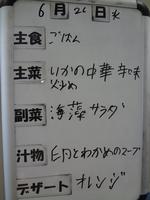 6月26日火
主食 ごはん
主菜 いかの中華辛味
炒め
副菜 海藻サラダ
汁物 卵とわかめのスープ
デザート オレンジ